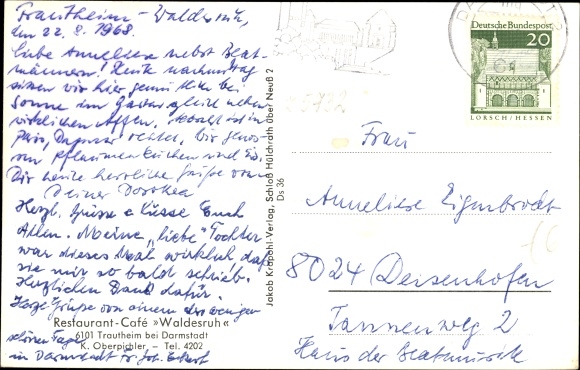 Trautheim - Waldesruh,
den 22. 8. 1968.
Liebe Anneliese nebst Beat-
männern! Heute nachmittag
sitzen wir hier gemütlich bei
Sonne im Garten gleich neben
in
Paris, Dagmar reitet, wir genos-
sen Pflaumenkuchen und Eis.
Dir heute herzliche Grüße von
Deiner Dorothea
Herzl. Grüsse u Küsse Euch
Allen. Meine "liebe" Tochter
war dieses Mal wirklich
sie mir so bald schrieb.
Herzlichen Dank dafür.
Herzl. Grüße von einem der wenigen
schönen Tage
in Darmstadt Fr. Joh.
Restaurant-Café »Waldesruh«
6101 Trautheim bei Darmstadt
K. Oberpichler — Tel. 4202
Jakob Krapohl-Verlag, Schloß Hülchrath über Neuß 2
Ds 36
Deutsche Bundespost
20
LORSCH/HESSEN
Frau
Anneliese Eigenbrodt
8024 Deisenhofen
Tannenweg 2
Haus der Beatmusik